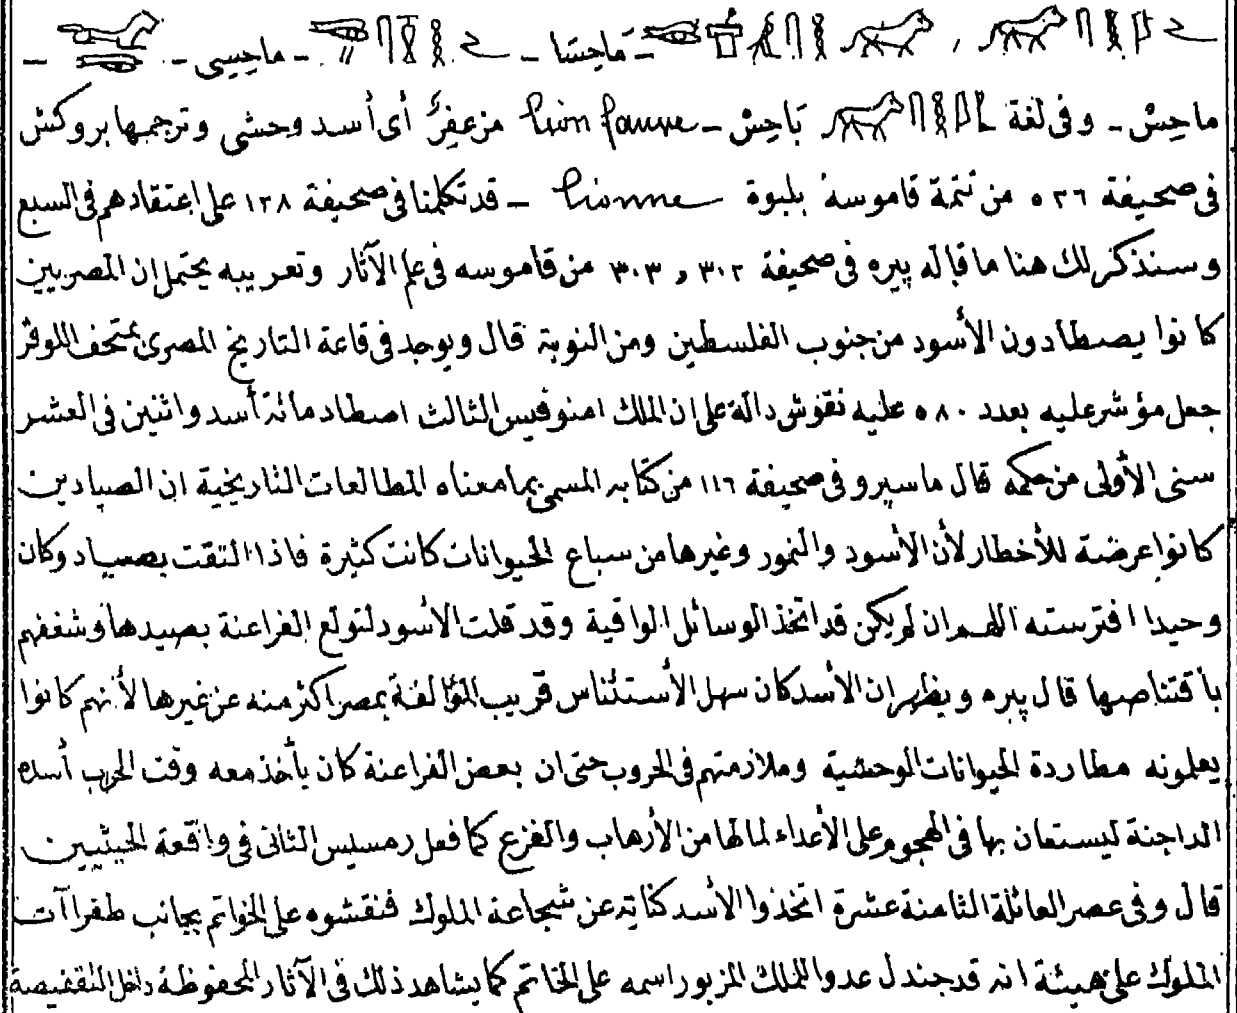 ماحِسَا - ماحِسِى -
ماحِسْ - وفى لغة بَاحِسْ - lion fauve مزعفِرٌ أى أسد وحشى وترجمها بروكش
فى صحيفة ٥٣٦ من تتمة قاموسه بلبوة lionne - قد تكلمنا فى صحيفة ١٣٨ على اعتقادهم فى السبع
وسنذكر لك هنا ما قاله پيره فى صحيفة ٣٠٢ و ٣٠٣ من قاموسه فى علم الآثار وتعريبه يحتمل ان المصريين
كانوا يصطادون الأسود من جنوب الفلسطين ومن النوبة قال ويوجد فى قاعة التاريخ المصرى بمتحف اللوفر
جعل مؤشر عليه بعدد ٥٨٠ عليه نقوش دالة على ان الملك امنوفيس الثالث اصطاد مائة أسد واثنين فى العشر
سنى الأولى من حكمه قال ماسپرو فى صحيفة ١١٦ من كتابه المسمى بما معناه المطالعات التاريخية ان الصيادين
كانوا عرضة للأخطار لأن الأسود والنمور وغيرها من سباع الحيوانات كانت كثيرة فاذا التقت بصياد وكان
وحيدا افترسته اللهم ان لم يكن قد اتخذ الوسائل الواقية وقد قلت الأسود لتولع الفراعنة بصيدها وشغفهم
باقتناصها قال پيره ويظهر ان الأسد كان سهل الأستئناس قريب المؤالفة بمصر اكثر منه عن غيرها لأنهم كانوا
يعلمونه مطاردة الحيوانات الوحشية وملازمتهم فى الحروب حتى ان بعض الفراعنة كان يأخذ معه وقت الحرب أسده
الداجنة ليستعان بها فى الهجوم على الأعداء لما لها من الأرهاب والفزع كما فعل رمسيس الثانى فى واقعة الحيثيين
قال وفى عصر العائلة الثامنة عشرة اتخذوا الأسد كناية عن شجاعة الملوك فنقشوه على الخواتم بجانب طغراآت
الملوك على هيئة انه قد جندل عدوا للملك المزبور اسمه على الخاتم كما يشاهد ذلك فى الآثار المحفوظة داخل